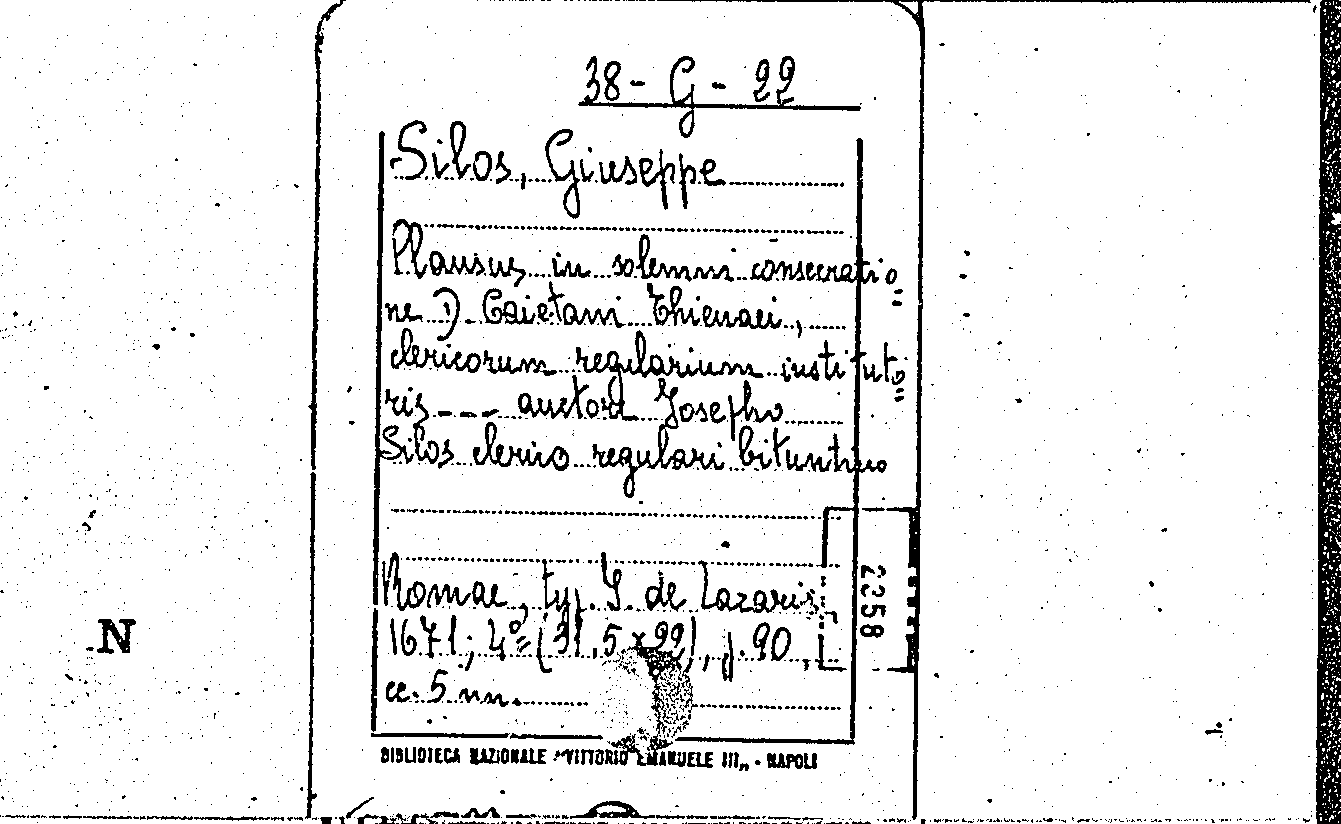 38 - G - 22
Silos, Giuseppe
Plausus in solemni consecratio"
ne D. Caietani Thienaei,
clericorum regularium instituto"
ris --- auctore Josepho
Silos clerico regulari bituntino
Romae, typ. I. de Lazaris,
1671; 4º (31,5 x 22), p. 90,
cc. 5 nn.
2358
N
BIBLIOTECA NAZIONALE "VITTORIO EMANUELE III„ - NAPOLI